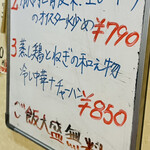 のオイスター炒め ¥790
3 蒸し鶏とねぎの和え物
冷し中華+チャーハン
¥850
ご飯大盛無料